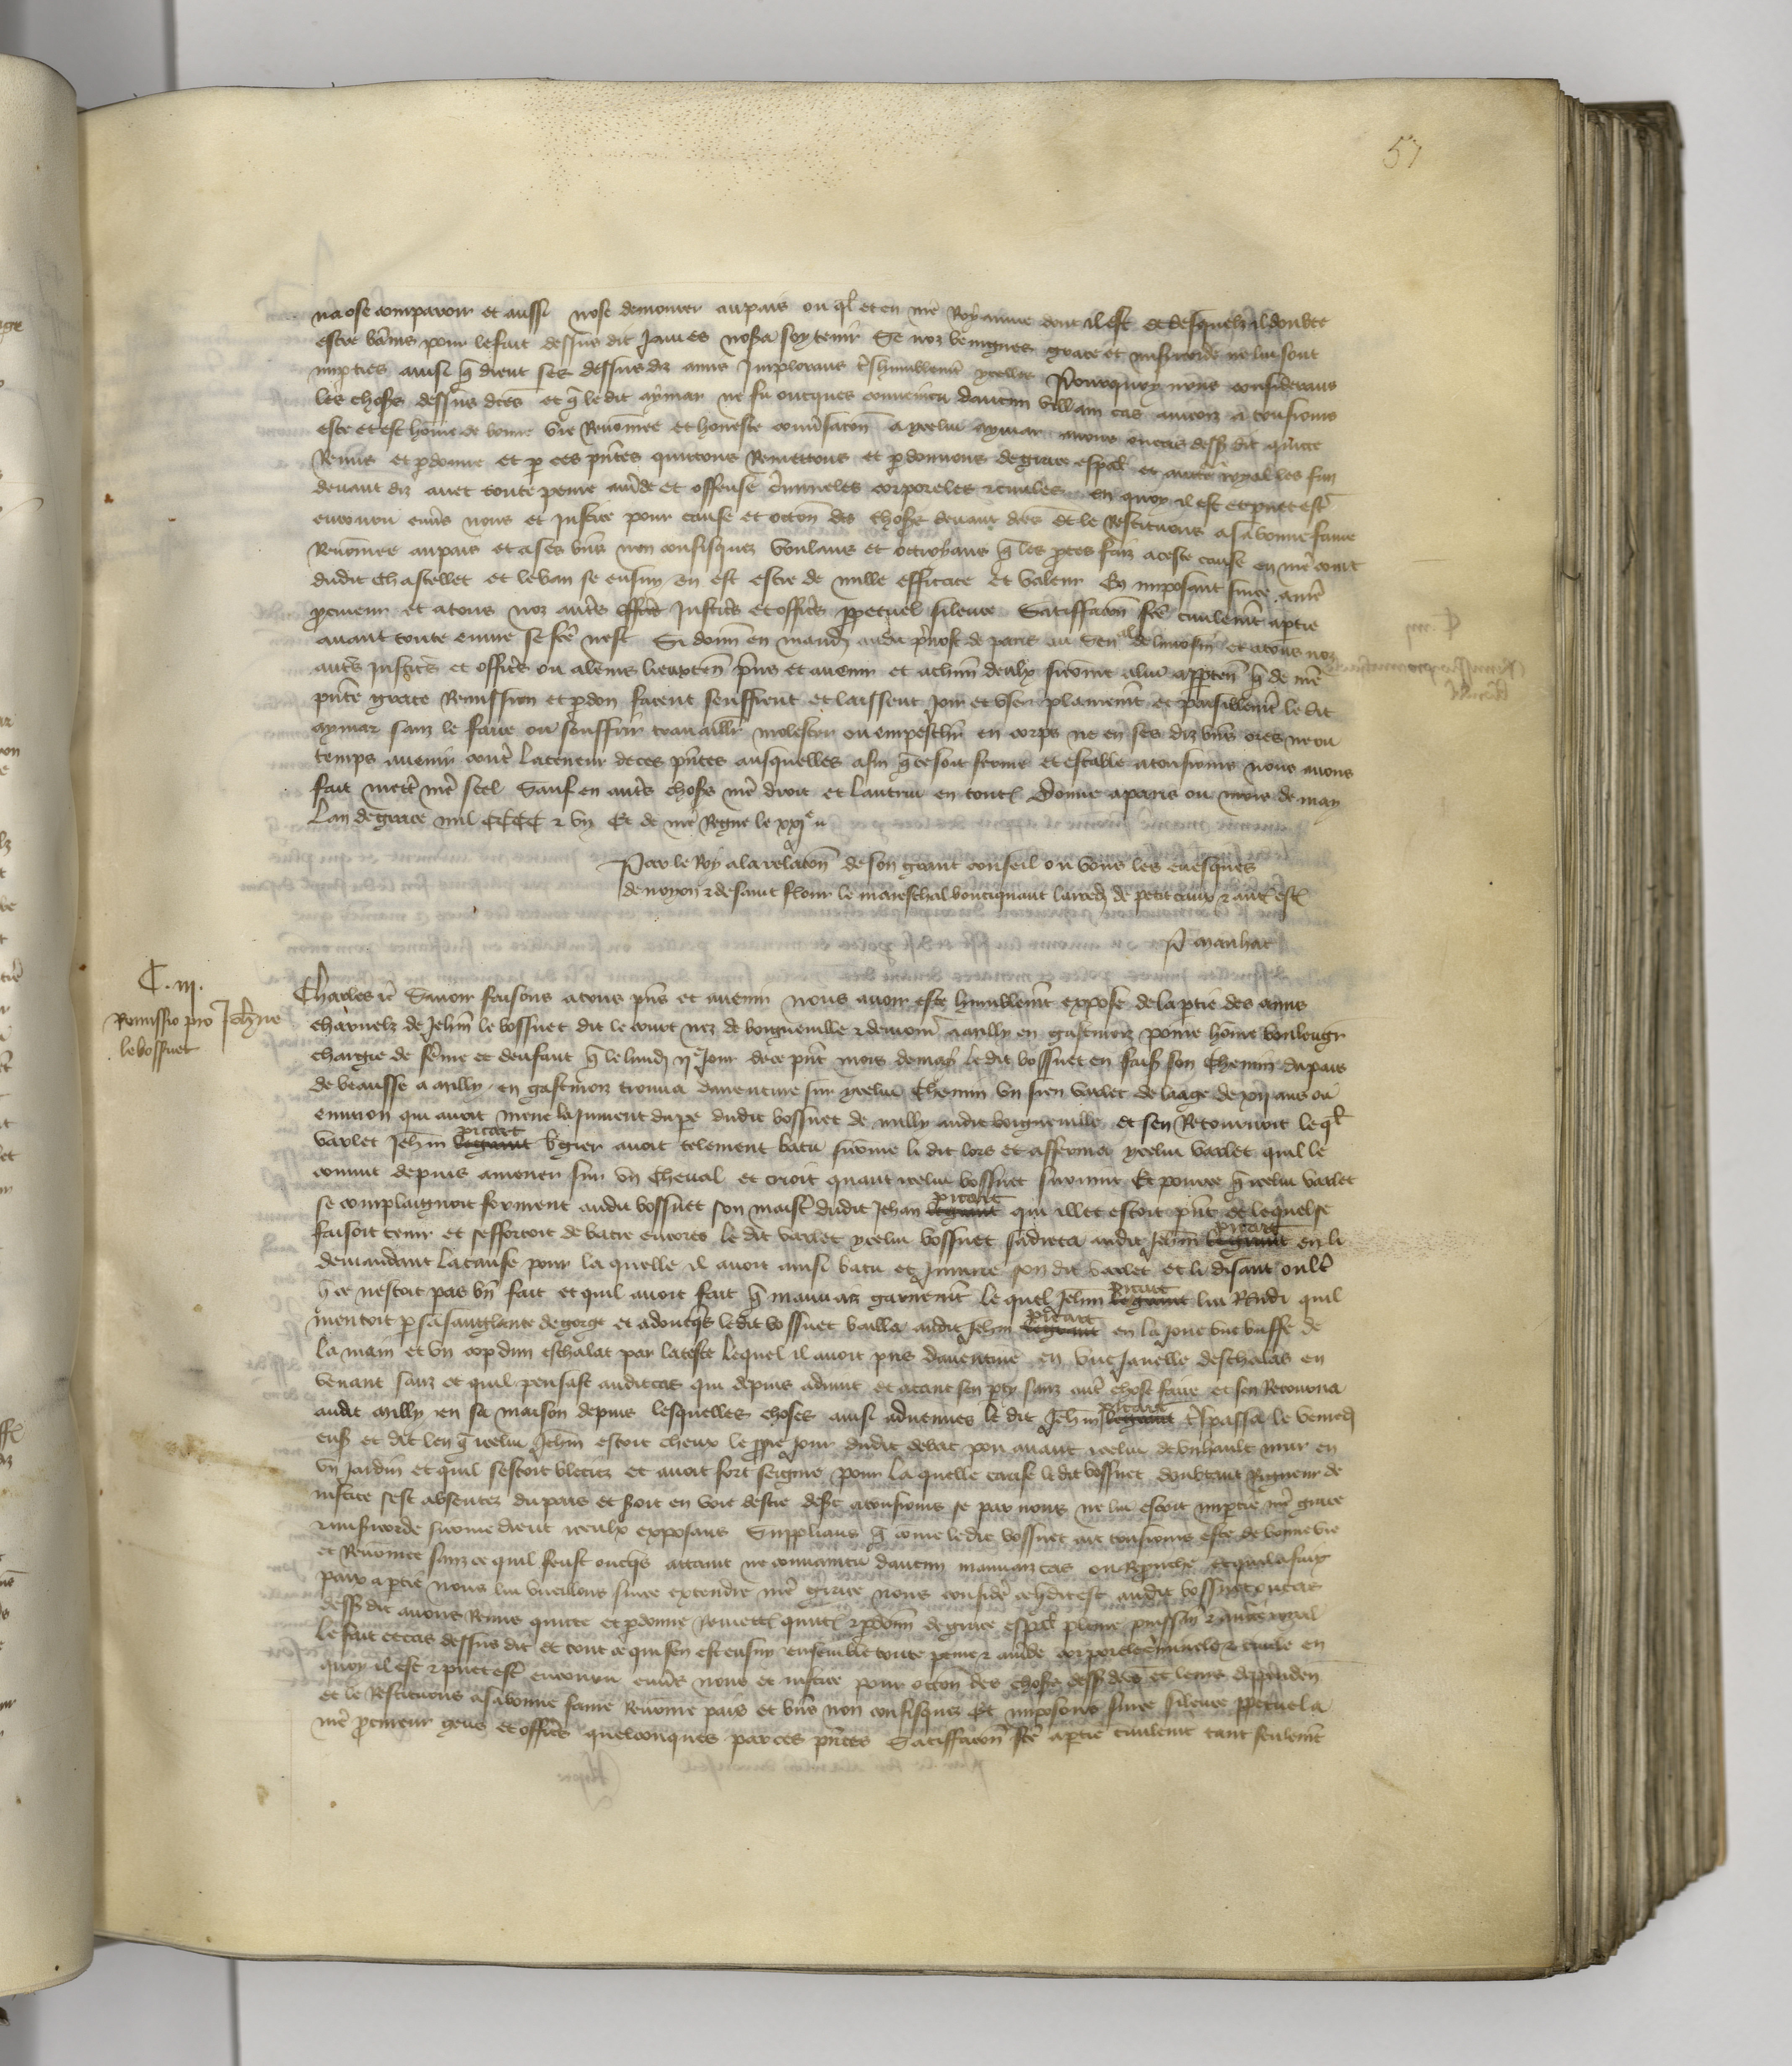 57
na ose comparoir et aussi nose demourer ou pais ouql et en nre Royaume dont il est et desquelz il doubte
estre bannis pour le fait dessus dit James nosera soy tenir Se noz benignes grace et misericorde ne lui sont
imparties ainsi q dient ses dessus diz amis Implorans treshumblemt ycelles Pourquoy nous considerans
les choses dessus dctes et q le dit aymar ne fu oncques convaincu daucun villain cas ancois a tousiours
este et est homme de bonne vie Renommee et honeste conversacon a ycelui aymar avons ou cas dessus dit quitte
Remis et pdonne et p ces pntes quittons Remettons et pdonnons de grace espal et auctte royal les fait
devant diz avec toute peine amde et offense criminele corporele et civile en quoy il est et puet estre
encouru envs nous et Justice pour cause et occon des choses devant dctes et le Restituons a sa bonne fame
Renommee au pais et a ses bns non confisquez voulans et octroyans q les proces faiz a ceste cause en nre court
dudit Chastellet et le ban se ensuy en est estre de nulle efficace et valeur En imposant sur ce a nre
pcureur et a tous noz autres Justicrs et officrs ppetuel silence Satisfacon fcte civilemt a ptie
avant toute euvre se fcte nest Si donn en mandt audit prevost de paris au Senal de limosin et a tous noz
autrs Justicrs et officrs ou a leurs lieuxten prns et avenir et a chun deulx si come a lui appten q de nre
pnte grace Remission et pdon facent seuffrent et laissent Joir et user plainemt et paisiblemt le dit
aymar sanz le faire ou souffrir travailler molester ou empescher en corps ne en ses diz bns ores ne ou
temps avenir contre la teneur de ces pntes ausquelles afin q ce soit ferme et estable a tousiours nous avons
fait mettre nre seel Sauf en autrs choses nre droit et lautrui en toutes Donne a paris ou mois de may
Lan de grace mil CCCC et un Et de nre Regne le xxie
Par le Roy a la relacon de son grant conseil ou vous les evesques
de noyon et de saint flour le mareschal bouciquaut larced de petit caux et autres estes
P manhac
C. iii.
Remissio pro Johne
le bossuet
Charles etc Savoir faisons a tous pns et avenir nous avoir este humblemt expose de la ptie des amis
charnelz de Jehan le bossuet dit le court nez de boigneville et demour a milly en gastinoiz povre home boulengr
chargie de feme et denfant q le lundi iie Jour de ce pnt mois de may le dit bossuet en faist son Chemin du pais
de beausse a milly en gastinoiz trouva daventure sur ycelui Chemin un sien varlet de laage de xvi ans ou
environ qui avoit mene la Jument du pe dudit bossuet de milly audit boigneville et sen Retournoit leql
varlet Jehan picart bgier avoit telement batu si come li dit lors et afferma ycelui varlet quil le
convint depuis amener sur un Cheval et crioit quant icelui bossuet survint Et pour ce q icelui varlet
se complaignoit forment audit bossuet son maistre dudit Jehan picart qui illec estoit pnt et lequel se
faisoit tenir et sefforcoit de batre encores le dit varlet ycelui bossuet sadreca audit Jehan picart en li
demandant la cause pour la quelle il avoit ainsi batu et Injurie son dit varlet et li disant oultre
q ce nestoit pas bn fait et quil avoit fait q mauvaiz garnemt Lequel Jehan picart lui Rendi quil
mentoit p sa sanglante de gorge et adoncqs ledit bossuet bailla audit Jehan picart en la Joue une buffe de
la main et un cop dun eschalat par la teste lequel il avoit pris daventure en une Javelle deschalas en
venant sanz ce quil pensast audit cas qui depuis advint et a tant sen pty sanz autre chose faire et sen Retourna
audit milly en sa maison depuis lesquelles choses ainsi advenues le dit Jehan picart trespassa le vendredi
ensuivant et dit len q icelui Jehan estoit cheux le ppre Jour dudit debat pou avant icelui de un hault mur en
un Jardin et quil sestoit bleciez et avoit fort seignie pour la quelle cause le dit bossuet doubtant Rigueur de
iustice sest absentez du pais et seroit en voie destre desert a tousiours se par nous ne lui estoit impartie nre grace
et misericorde si come dient iceulx exposans Supplians q come ledit bossuet ait tousiours este de bonne vie
et Renommee sanz ce quil feust oncqs attaint ne convaincu daucun mauvaiz cas ou Reprouche et quil a fait
paix a ptie nous lui vueillons sur ce extendre nre grace nous considere ce q dit est audit bossuet ou cas
dessus dit avons Remis quitte et pdonne Remettons quittons et pdonn de grace espal plaine puissance et auctte royal
Le fait et cas dessus dit et tout ce qui sen est ensuy ensemble toute peine et amde corporele criminele et civile en
quoy il est et puet estre encouru envs nous et iustice pour occon des choses dessus dctes et leurs dependen
et le Restituons a sa bonne fame Renommee pais et bns non confisquez Et imposons sur ce silence ppetuel a
nre pcureur gens et officrs quelconques par ces pntes Satisfacon fcte a ptie civilemt tant seulemt